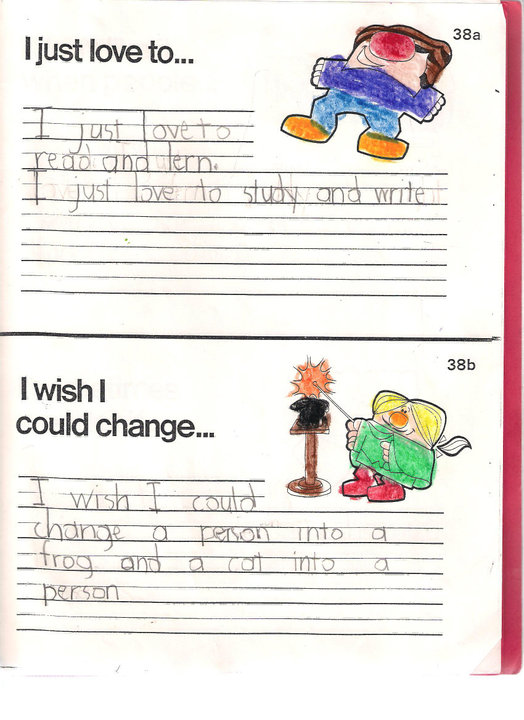 I just love to...
38a
I just love to
read and lern.
I just love to study and write
38b
I wish I
could change...
I wish I could
change a person into a
frog and a cat into a
person